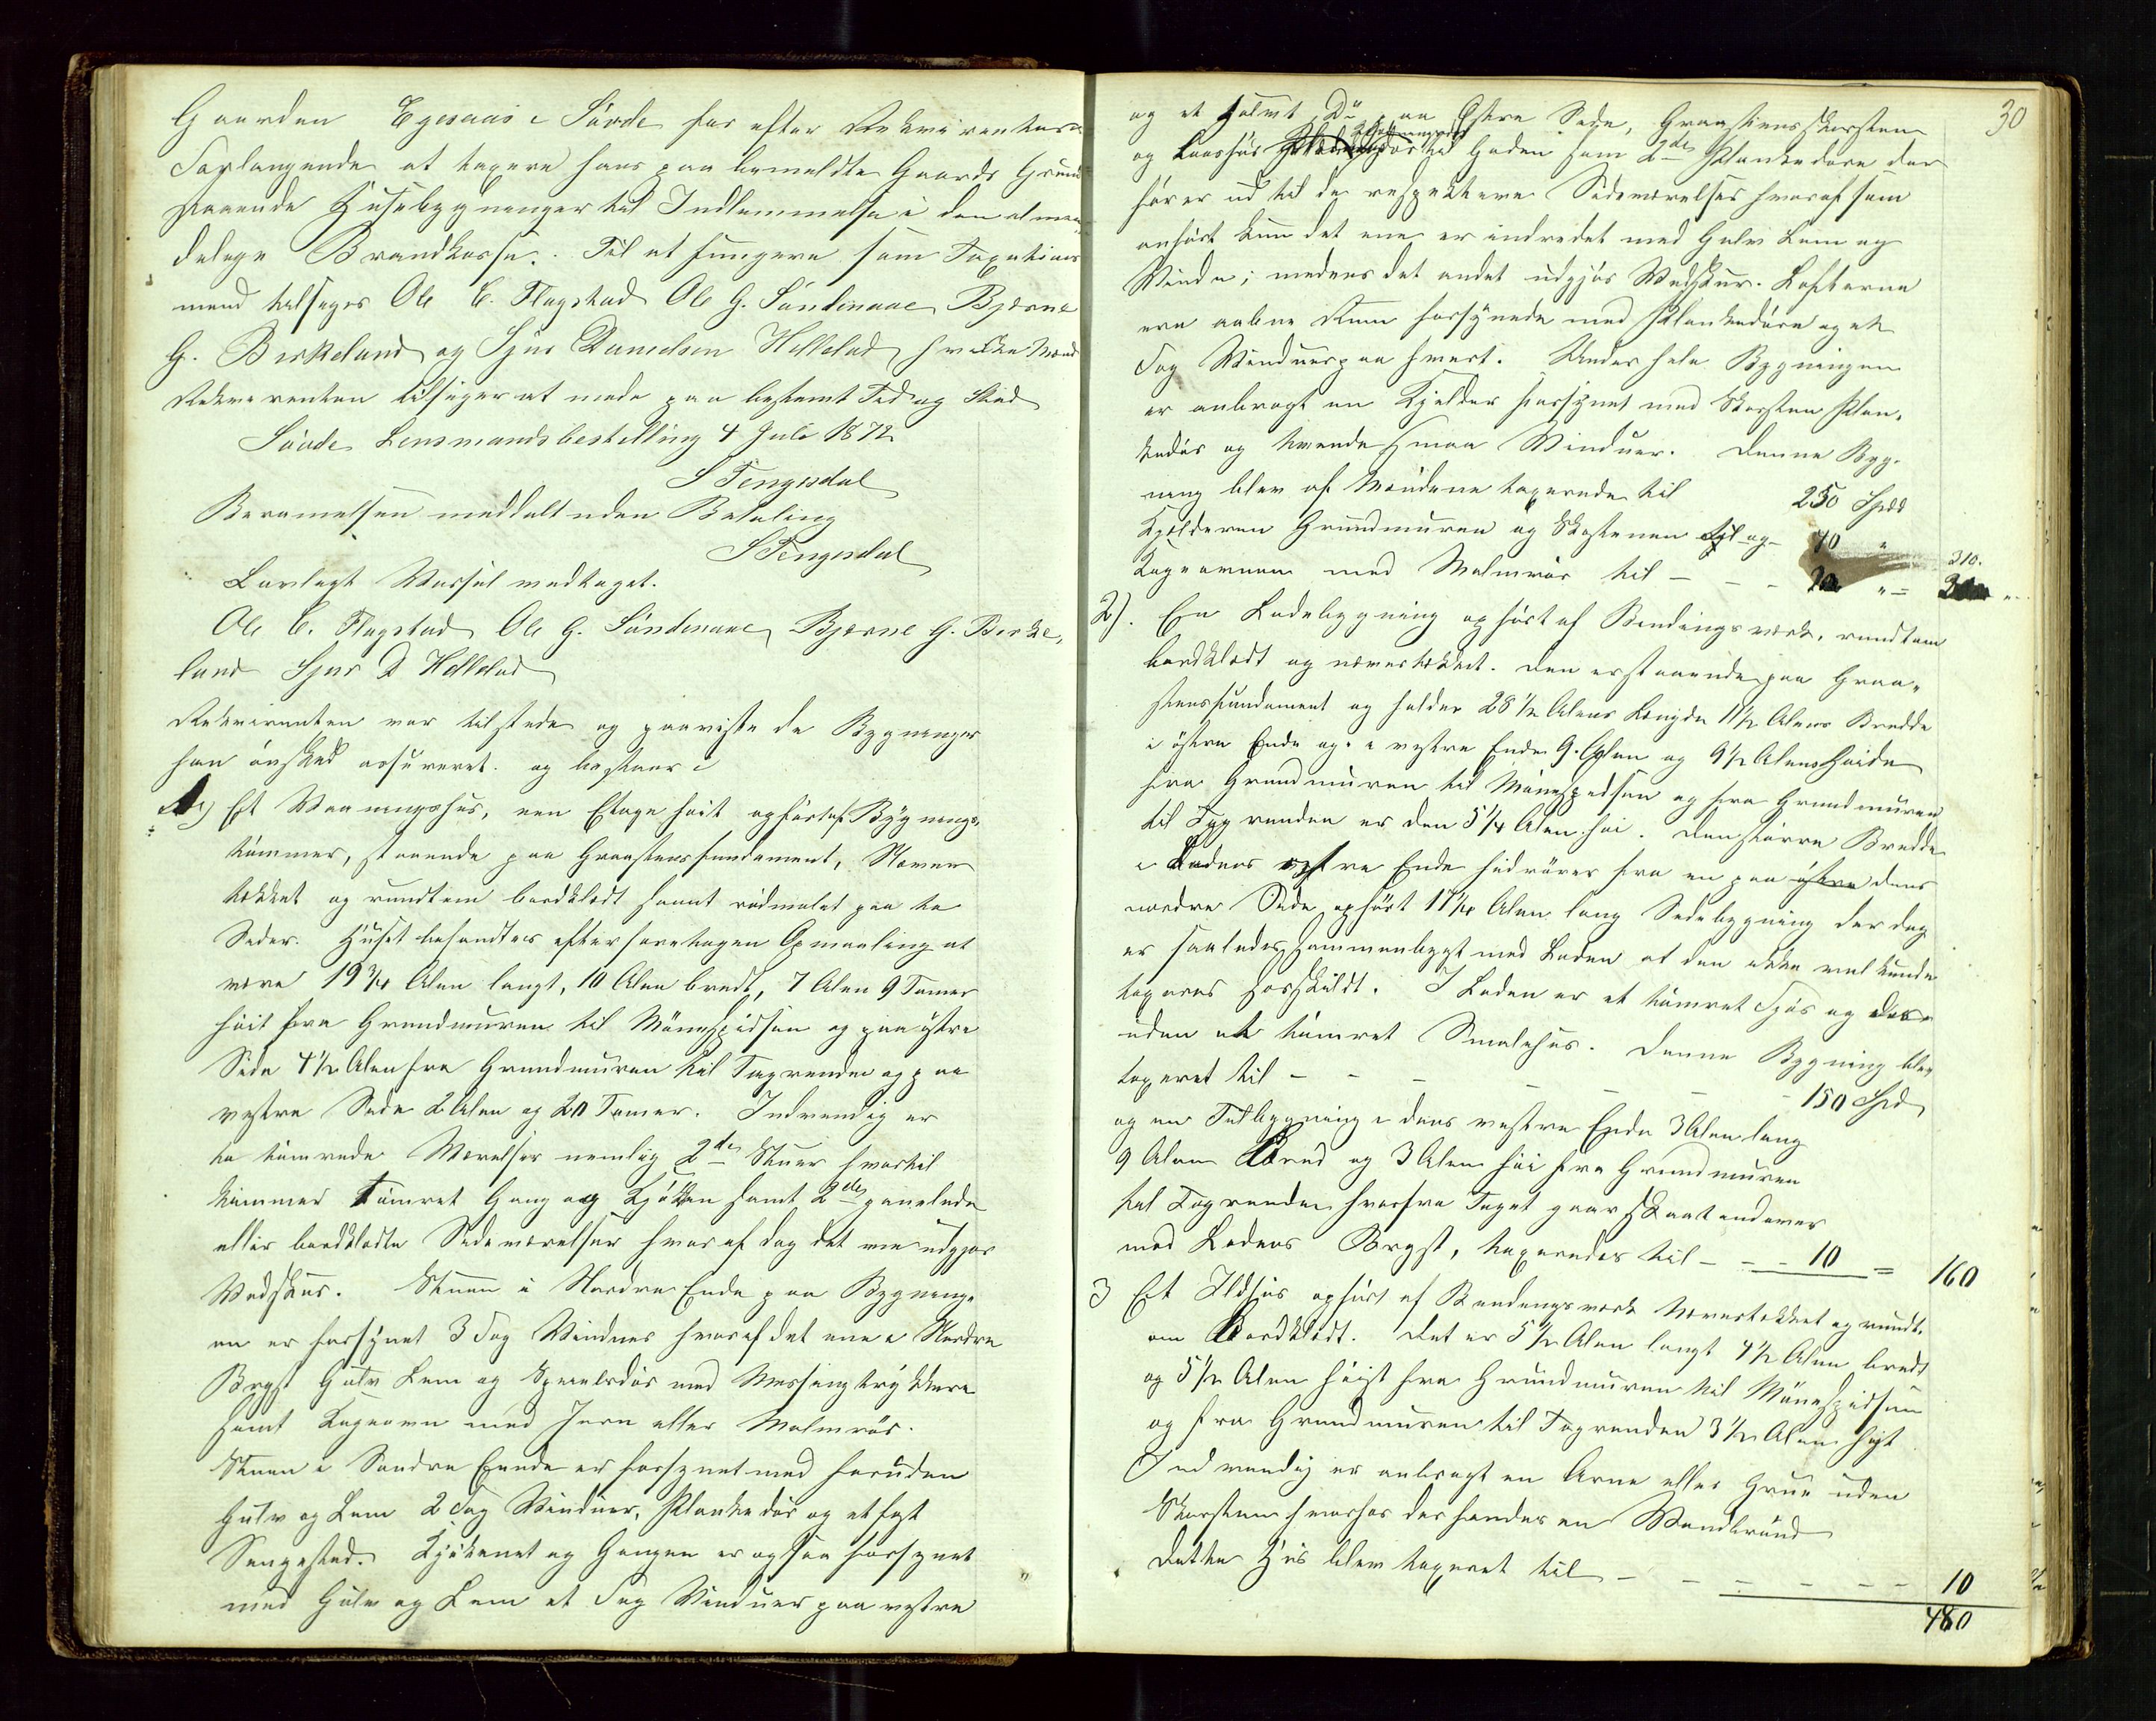 Gaarden Egesaas i Søvde har efter Rekvirentens
Forlangende at taxere hans paa bemeldte Gaards Grund
staaende Husebygninger til Indlemmelse i den almin-
delige Brandkasse. Til at fungere som Taxations
mænd tilsiges Ole C. Flugstad Ole G. Søndenaae Bjerne
G. Birkeland og Sjur Danielsen Helleland hvilke Mænd
Rekvirenten tilsiger at møde paa bestemt Tid og Sted
Søvde Lensmandsbestilling 4 Juli 1872
S Tengesdal
Berammelsen meddelt uden Betaling
S Tengesdal
Lovligt Varsel vedtaget.
Ole C. Flugstad Ole G. Søndenaae Bjerne G. Birke-
land Sjur D Helleland
Rekvirenten var tilstede og paaviste de Bygninger
han ønsked assureret. og bestaar i
1) Et Vaaningshus, een Etage høit opført af Bygnings-
tømmer, staaende paa Graastensfundament, Næver
tækket og rundtom bordklædt samt rødmalet paa to
Sider. Huset befandtes efter foretagen Opmaaling at
være 19 3/4 Alen langt, 10 Alen bredt, 7 Alen 9 Tomer
høit fra Grundmuren til Mønespidsen og paa østre
Side 4 1/2 Alen fra Grundmuren til Tagrenden og paa
vestre Side 2 Alen og 20 Tomer. Indvendig er
to tømrede Værelser nemlig 2de Stuer hvortil
kommer Tømret Gang og Kjøkken samt 2de panelede
eller bordklædte Sideværelser hvoraf dog det ene udgjør
Vedskur. Stuen i Nordre Ende paa Bygning-
en er forsynet 3 Fag Vinduer hvoraf det ene i Nordre
Bryst Gulv Lem og Speielsdør med Messingtrykkere
samt Kogeovn med Jern eller Malmrør.
Stuen i Søndre Ende er forsynet med foruden
Gulv og Lem 2 Fag Vinduer, Plankedør og et fast
Sengested. Kjøkenet og Gangen er ogsaa forsynet
med Gulv og Lem et Fag Vinduer paa vestre
30
og et halvt Do paa Østre Side, Graastens skorsten
og Laashus til Gaden som 2de Plankedøre der
fører ud til de respektive Sideværelser hvoraf som
anført kun det ene er indredet med Gulv Lem og
Vindu; medens det andet udgjør Vedskur. Lofterne
ere aabne Rum forsynede med Plankedøre og et
Fag Vinduer paa hvert. Under hele Bygningen
er anbragt en Kjelder forsynet med Skorsten Plan-
kedør og tvende smaa Vinduer. Denne Byg-
ning blev af Mændene taxerede til 250 Spd
Kjelderen Grundmuren og Skorstenen til og 40 "
Kogeovnen med Malmrør til - - - 20 " = 310.
2). En Ladebygning opført af Bindingsværk, rundtom
bordklædt og nævertækket. Den er staaende paa Graa-
stensfundament og holder 28 1/2 Alens Længde 11 1/2 Alens Bredde
i østre Ende og i vestre Ende 9 Alen og 9 1/2 Alens Høide
fra Grundmuren til Mønespidsen og fra Grundmuren
til Tagrenden er den 5 1/4 Alen høi. Den større Bredde
i Ladens østre Ende hidrører fra en paa østre dens
nordre Side opført 17 1/4 Alen lang Sidebygning der dog
er saaledes sammenbygt med Laden at den ikke vel kunde
taxeres særskildt. I Laden er et tømret Fjøs og des-
uden et tømret Smalehus. Denne Bygning blev
taxeret til - - - - - - 150 Spd
og en Tilbygning i dens vestre Ende 3 Alen lang
9 Alen Bred og 3 Alen høi fra Grundmuren
til Tagrenden hvorfra Taget gaar skraat indover
mod Ladens Bryst, taxeredes til - - - 10 = 160
3 Et Ildhus opført af Bindingsværk Nævertækket og rundt-
om Bordklædt. Det er 5 1/2 Alen langt 4 1/2 Alen bredt
og 5 1/2 Alen høist fra Grundmuren til Mønespidsen
og fra Grundmuren til Tagrenden 3 1/2 Alen høit
Indvendig er anbragt en Arne eller Grue uden
Skorsten hvorhos der findes en Vandbrønd
Dette Hus blev taxeret til - - - - - - 10
480